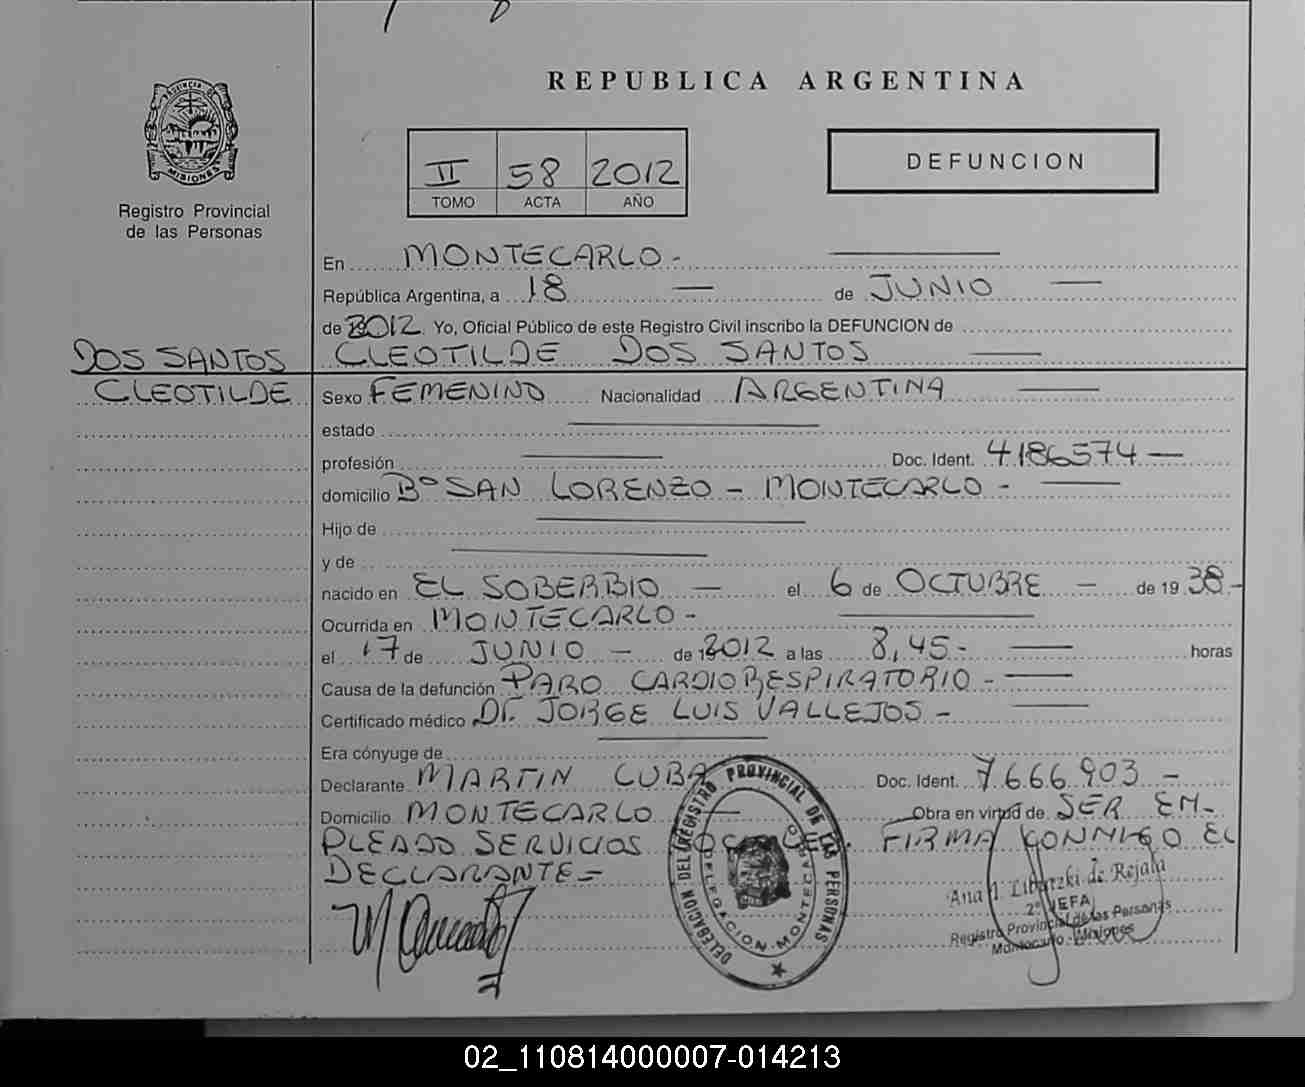 REPUBLICA ARGENTINA
PROVINCIA DE
MISIONES
Registro Provincial
de las Personas
II 58 2012
TOMO ACTA AÑO
DEFUNCION
En MONTECARLO -
República Argentina, a 18 — de JUNIO —
de 2012 Yo, Oficial Público de este Registro Civil inscribo la DEFUNCION de
DOS SANTOS
CLEOTILDE
CLEOTILDE DOS SANTOS —
Sexo FEMENINO Nacionalidad ARGENTINA —
estado —
profesión — Doc. Ident. 4.186574 —
domicilio Bº SAN LORENZO - MONTECARLO - —
Hijo de —
y de —
nacido en EL SOBERBIO — el 6 de OCTUBRE — de 19 38 -
Ocurrida en MONTECARLO - —
el 17 de JUNIO — de 2012 a las 8,45 - — horas
Causa de la defunción PARO CARDIORESPIRATORIO - —
Certificado médico Dr. JORGE LUIS VALLEJOS - —
Era cónyuge de —
Declarante MARTIN CUBA Doc. Ident. 7.666.903 -
Domicilio MONTECARLO — Obra en virtud de SER EM-
PLEADO SERVICIOS FIRMA CONMIGO EL
DECLARANTE =
DELEGACION DEL REGISTRO PROVINCIAL DE LAS PERSONAS
DELEGACION - MONTECARLO
Ana de Rojala
2º JEFA
Registro Provincial de las Personas
Montecarlo - Misiones
02_110814000007-014213